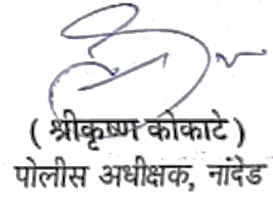 ( श्रीकृष्ण कोकाटे )
पोलीस अधीक्षक, नांदेड